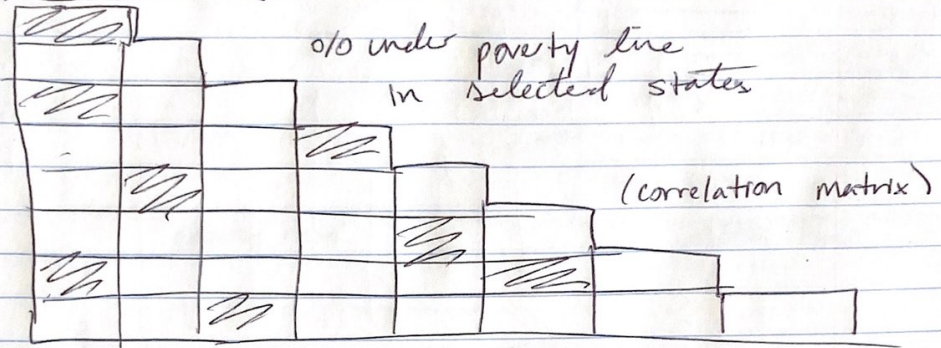 % under poverty line
in selected states
(correlation matrix)